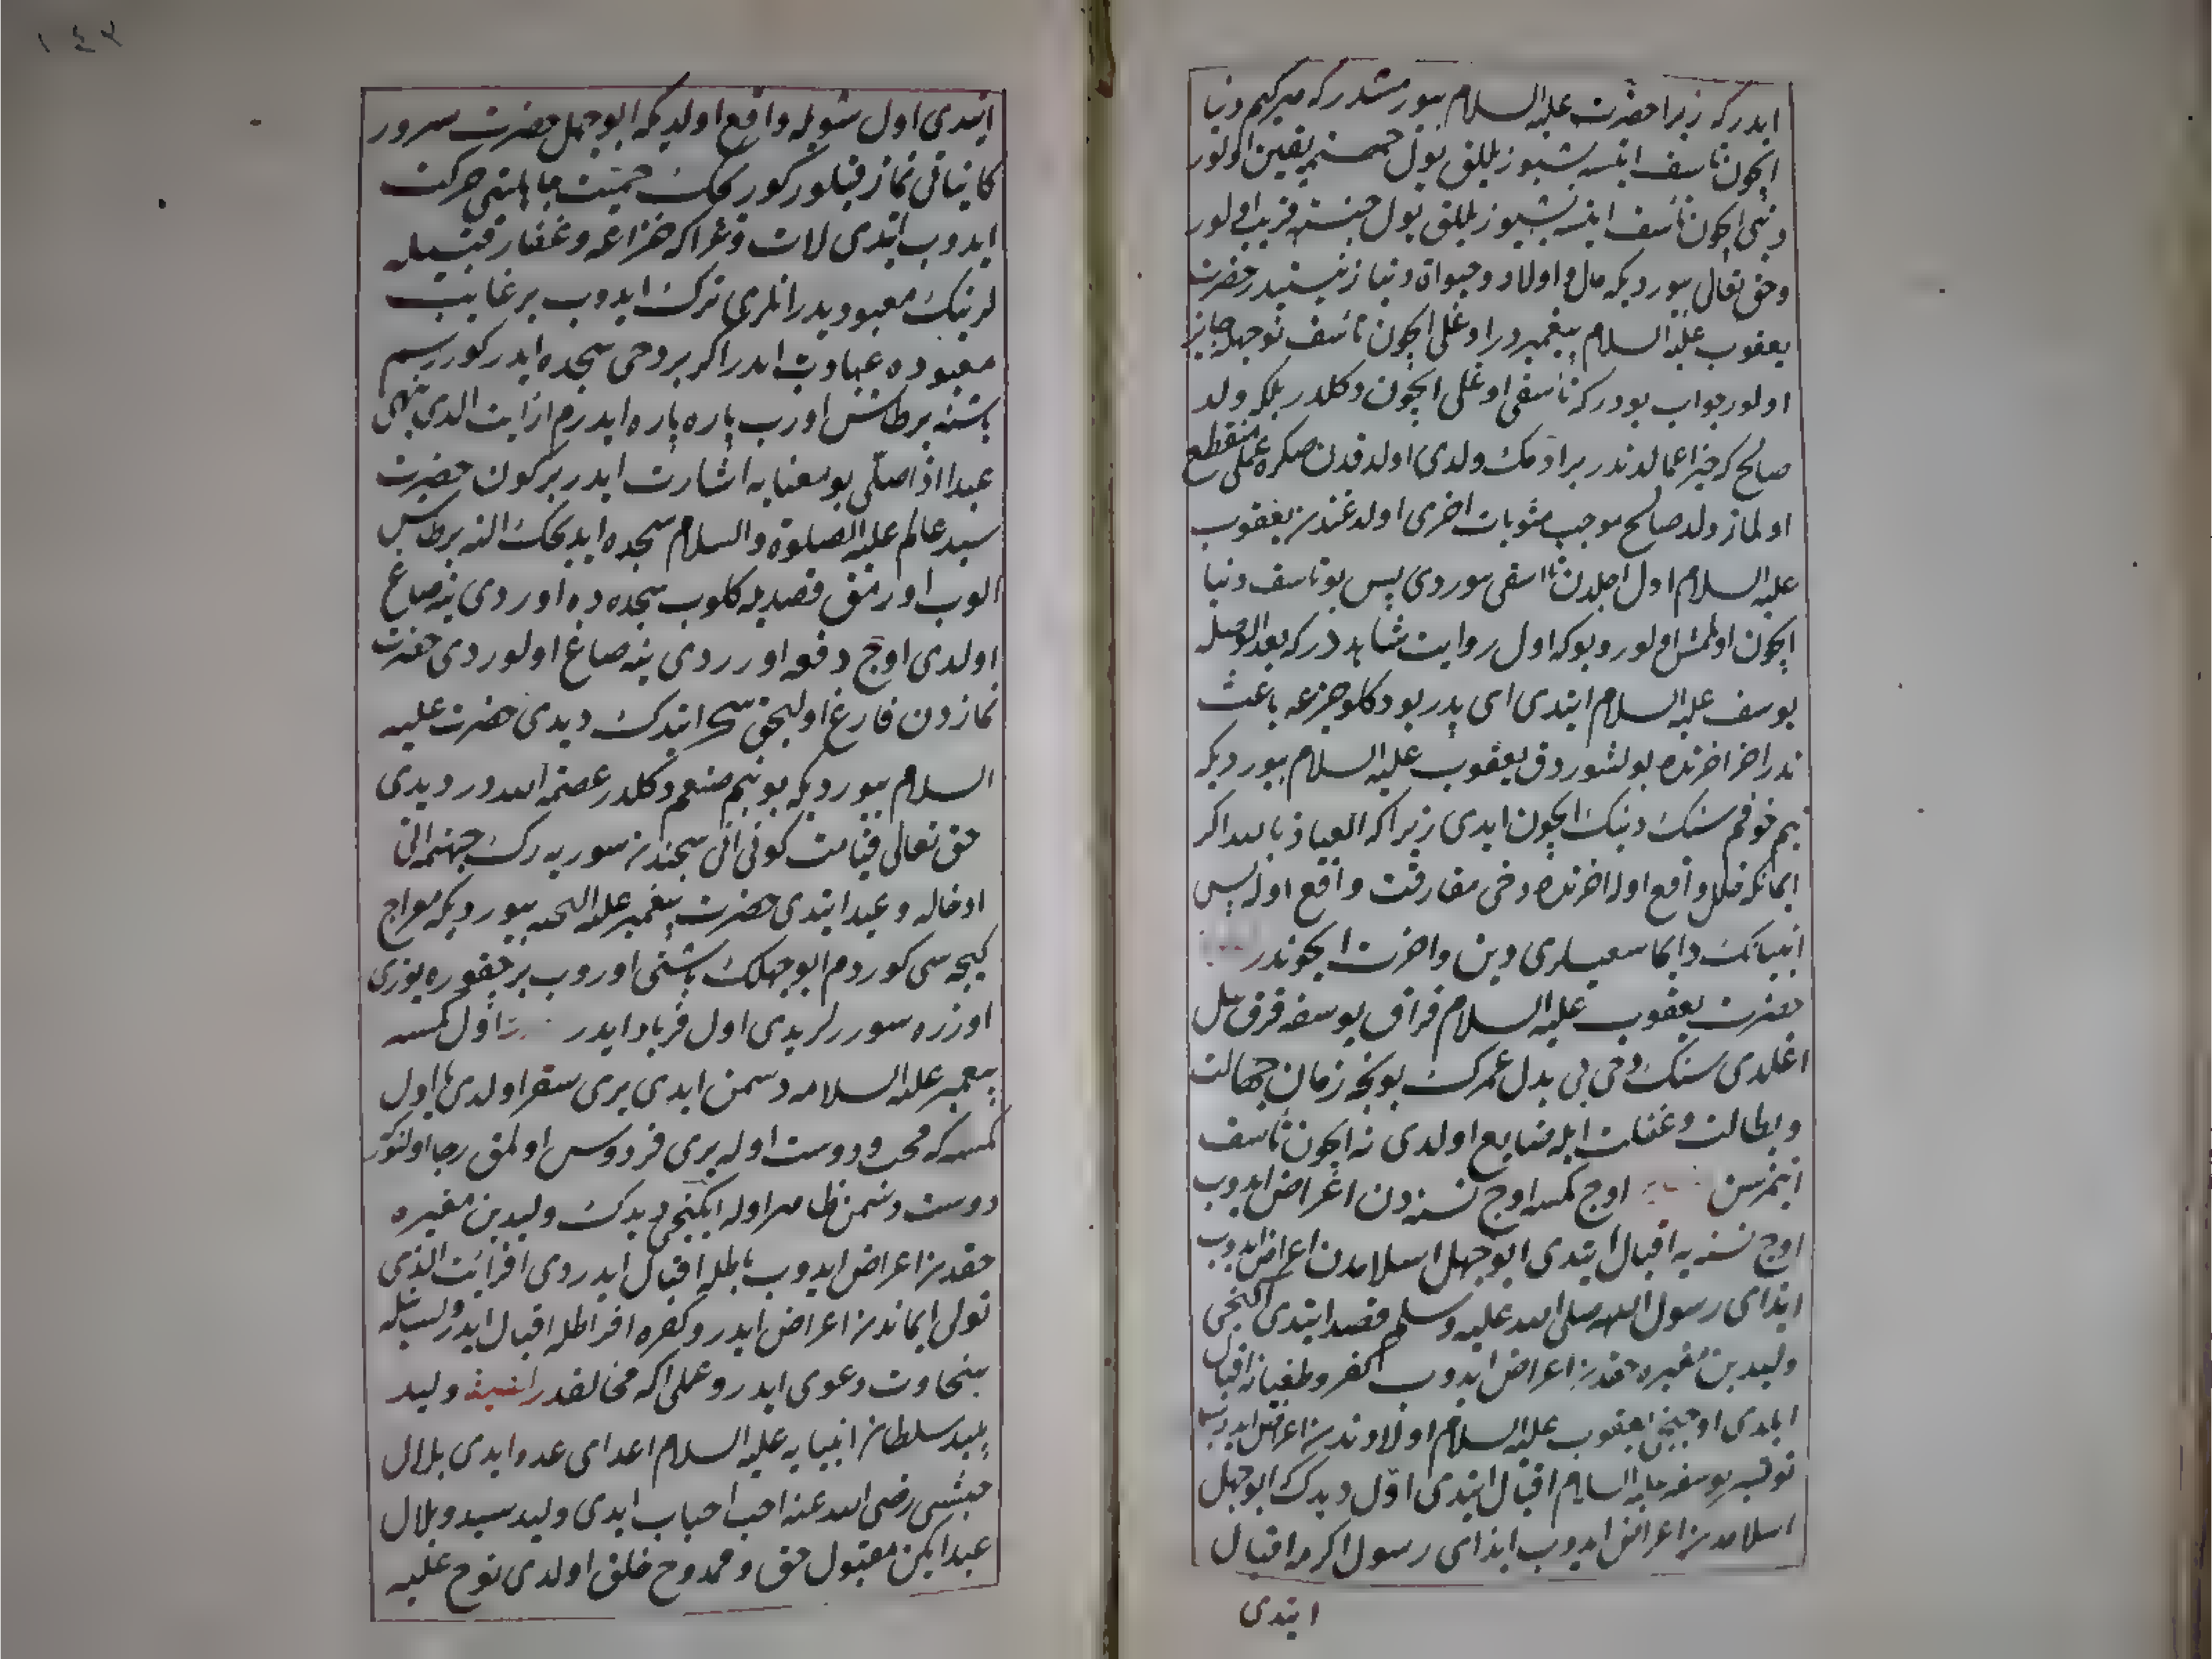 ايدر كه زيرا حضرت عليه السلام بيورمشدر كه هر كيم دنيا
ايچون تاسف ايتسه بشيوز ييللق يول جهنمه يقين اولور
ديني ايچون تأسف ايتسه بشيوز ييللق يول جنته قريب اولور
وحق تعالى بيورديكه مال و اولاد وحيوة دنيا زينتيدر حضرت
يعقوب عليه السلام پيغمبردر اوغلى ايچون تأسف نوجهله جايز
اولور جواب بودر كه تأسفى اوغلى ايچون دكلدر بلكه ولد
صالح كه خير اعمالدندر بر ادمك ولدى اولدقدن صكره عملى منقطع
اولماز ولد صالح موجب مثوبات اخرى اولدغندن يعقوب
عليه السلام اول اجلدن تأسفى بيوردى پس بو تاسف دنيا
ايچون اولمامش اولور و بوكه اول روايت شاهددر كه بعد الوصله
يوسف عليه السلام ايتدى اى پدر بو دكلو جزعه باعث
ندر اخر اخرتده بولشوردق يعقوب عليه السلام بيورديكه
بنم خوفم سنك دينك ايچون ايدى زيرا كه العياذ بالله اكر
ايمانكه خلل واقع اوله اخرتده دخى مفارقت واقع اوله پس
انبيانك دايما سعيلرى دين واخرت ايچوندر
حضرت يعقوب عليه السلام فراق يوسفه قرق ييل
اغلدى سنك دخى بى بدل عمرك بونجه زمان جهالت
وبطالت وغفلت ايله ضايع اولدى نه ايچون تأسف
ايتمزسن اوچ كمسه اوچ نسنه دن اعراض ايدوب
اوچ نسنه يه اقبال ايتدى ابو جهل اسلامدن اعراض ايدوب
ايذاى رسول الله صلى الله عليه وسلم قصد ايتدى ايكنجى
وليد بن مغيره حقدن اعراض ايدوب كفر وطغيانه اقبال
ايلدى اوچنجى يعقوب عليه السلام اولادندن اعراض ايدوب
يوسفه عليه السلام اقبال ايتدى اول ديدك ابو جهل
اسلامدن اعراض ايدوب ايذاى رسول اكرمه اقبال
ايتدى
١٤٣
ايتدى اول شويله واقع اولديكه ابو جهل حضرت سرور
كايناتى نماز قيلور كورجك حميت جاهليتى حركت
ايدوب ايتدى لات وعزا كه خزاعه وغفار قبيله
لرينك معبوديدر انلرى ترك ايدوب بر غايب
معبوده عبادت ايدر اكر بر دخى سجده ايدر كوررسم
باشنه بر طاش اورب پاره پاره ايدرم ارايت الذى ينهى
عبدا اذا صلى بو معنايه اشارت ايدر بر كون حضرت
سيد عالم عليه الصلوة والسلام سجده ايدجك النه بر طاش
الوب اورمق قصديله كلوب سجده ده اوردى ينه صاغ
اولدى اوچ دفعه اوردى ينه صاغ اولوردى حضرت
نمازدن فارغ اوليجق سحر ايتدك ديدى حضرت عليه
السلام بيورديكه بو بنم صنعم دكلدر عصمة اللهدر ديدى
حق تعالى قيامت كونى انى سجندن سوريه رك جهنمه انى
ادخاله وعيد ايتدى حضرت پيغمبر عليه التحيه بيورديكه معراج
كيجه سى كوردم ابو جهلك باشنى اوروب بر چقوره يوزى
اوزره سوررلريدى اول فرياد ايدر اول كمسه
پيغمبر عليه السلامه دشمن ايدى يرى سقر اولدى يا اول
كمسه كه محب ودوست اوله يرى فردوس اولمق رجا اولنور
دوست دشمن ظاهر اوله ايكنجى ديدك وليد بن مغيره
حقدن اعراض ايدوب باطله اقبال ايدردى افرأيت الذى
تولى ايماندن اعراض ايدر وكفره افراطله اقبال ايدر
سخاوت دعوى ايدر وعلى اكه مخالفدر وليد
پليد سلطان انبيايه عليه السلام اعداى عدو ايدى بلال
حبشى رضى الله عنه احب احباب ايدى وليد سيد وبلال
عبد ايكن مقبول حق وممدوح خلق اولدى نوح عليه